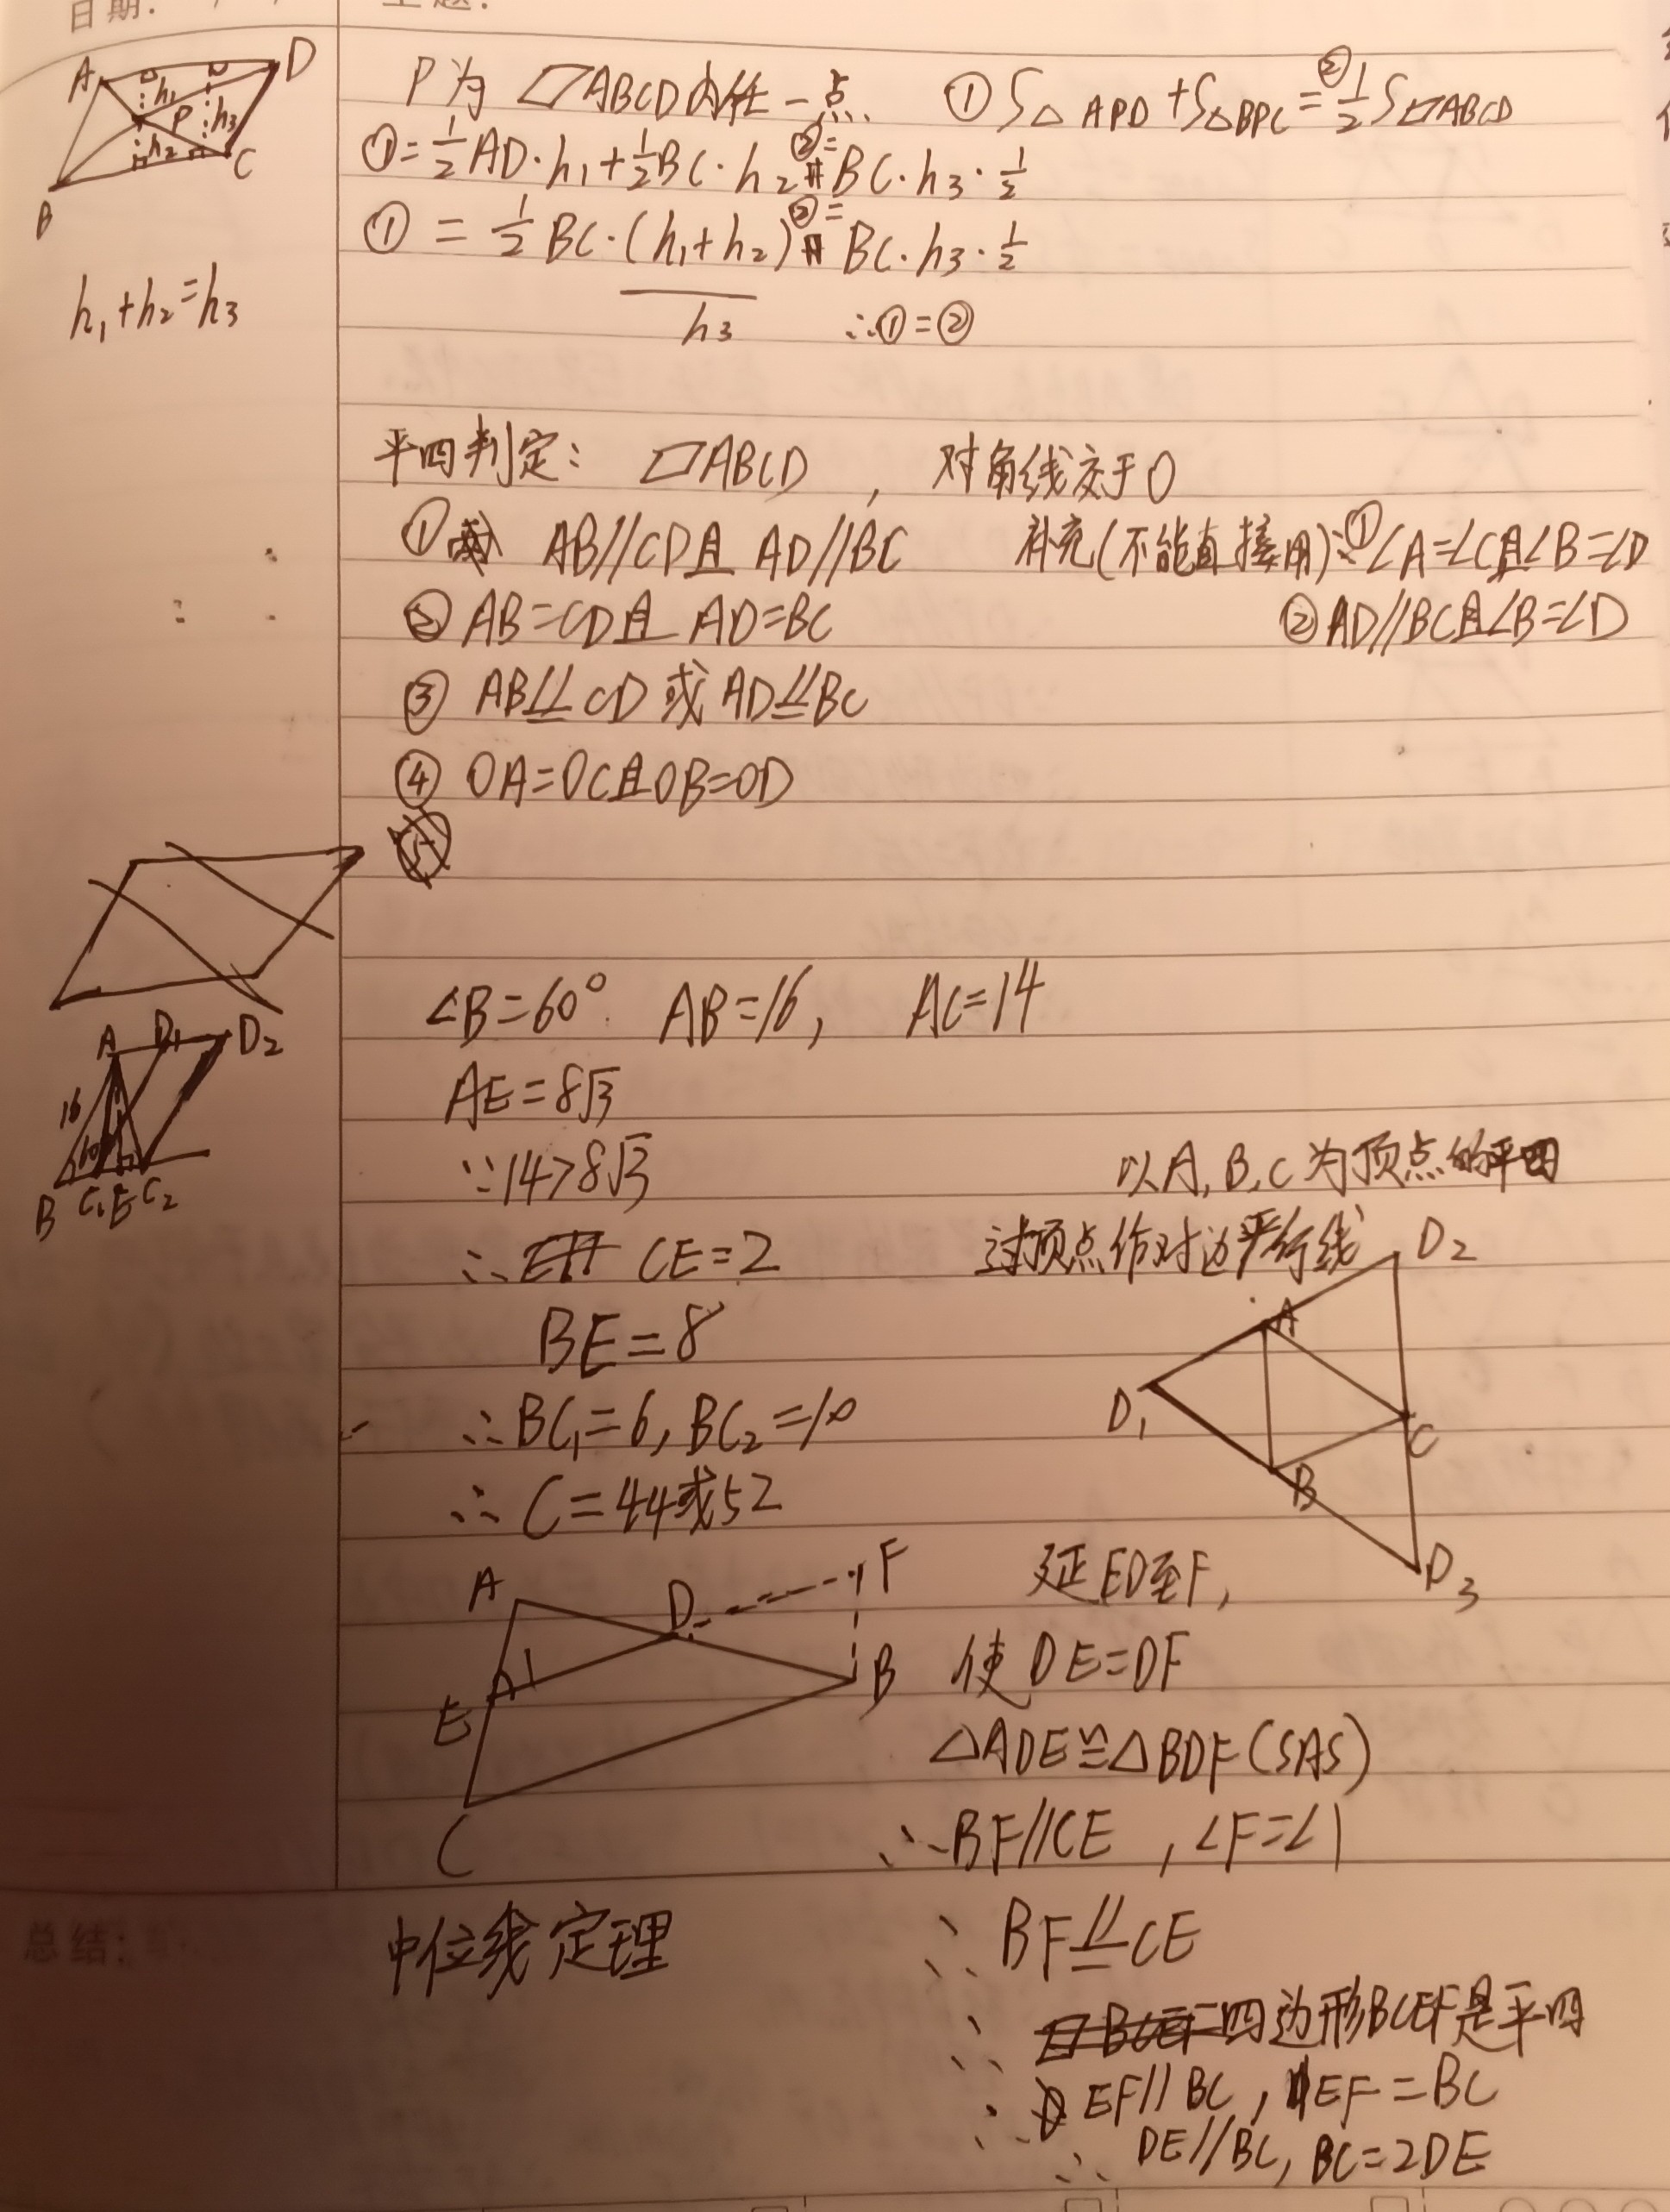 日期:
主题:
A D h₁ P h₃ h₂ C B
P为▱ABCD内任一点 ①S△APD+S△BPC=②½S▱ABCD
①=½AD·h₁+½BC·h₂ ②=BC·h₃·½
①=½BC·(h₁+h₂) ②=BC·h₃·½
h₁+h₂=h₃
h₃ ∴①=②
平四判定: ▱ABCD, 对角线交于O
① AB//CD且AD//BC 补充(不能直接用):①∠A=∠C且∠B=∠D
②AB=CD且AD=BC ②AD//BC且∠B=∠D
③ AB⫽CD或AD⫽BC
④ OA=OC且OB=OD
∠B=60° AB=16, AC=14
A D₁ D₂
16 60
B C₁ E C₂
AE=8√3
∵14>8√3
∴CE=2
BE=8
∴BC₁=6, BC₂=10
∴C=44或52
以A,B,C为顶点的平四
过顶点作对边平行线
D₂ A D₁ C B D₃
A D F E 1 B C
延ED至F,
使DE=DF
△ADE≌△BDF(SAS)
∴BF//CE, ∠F=∠1
总结:
中位线定理
∴BF⫽CE
∴四边形BCEF是平四
∴EF//BC, EF=BC
∴DE//BC, BC=2DE